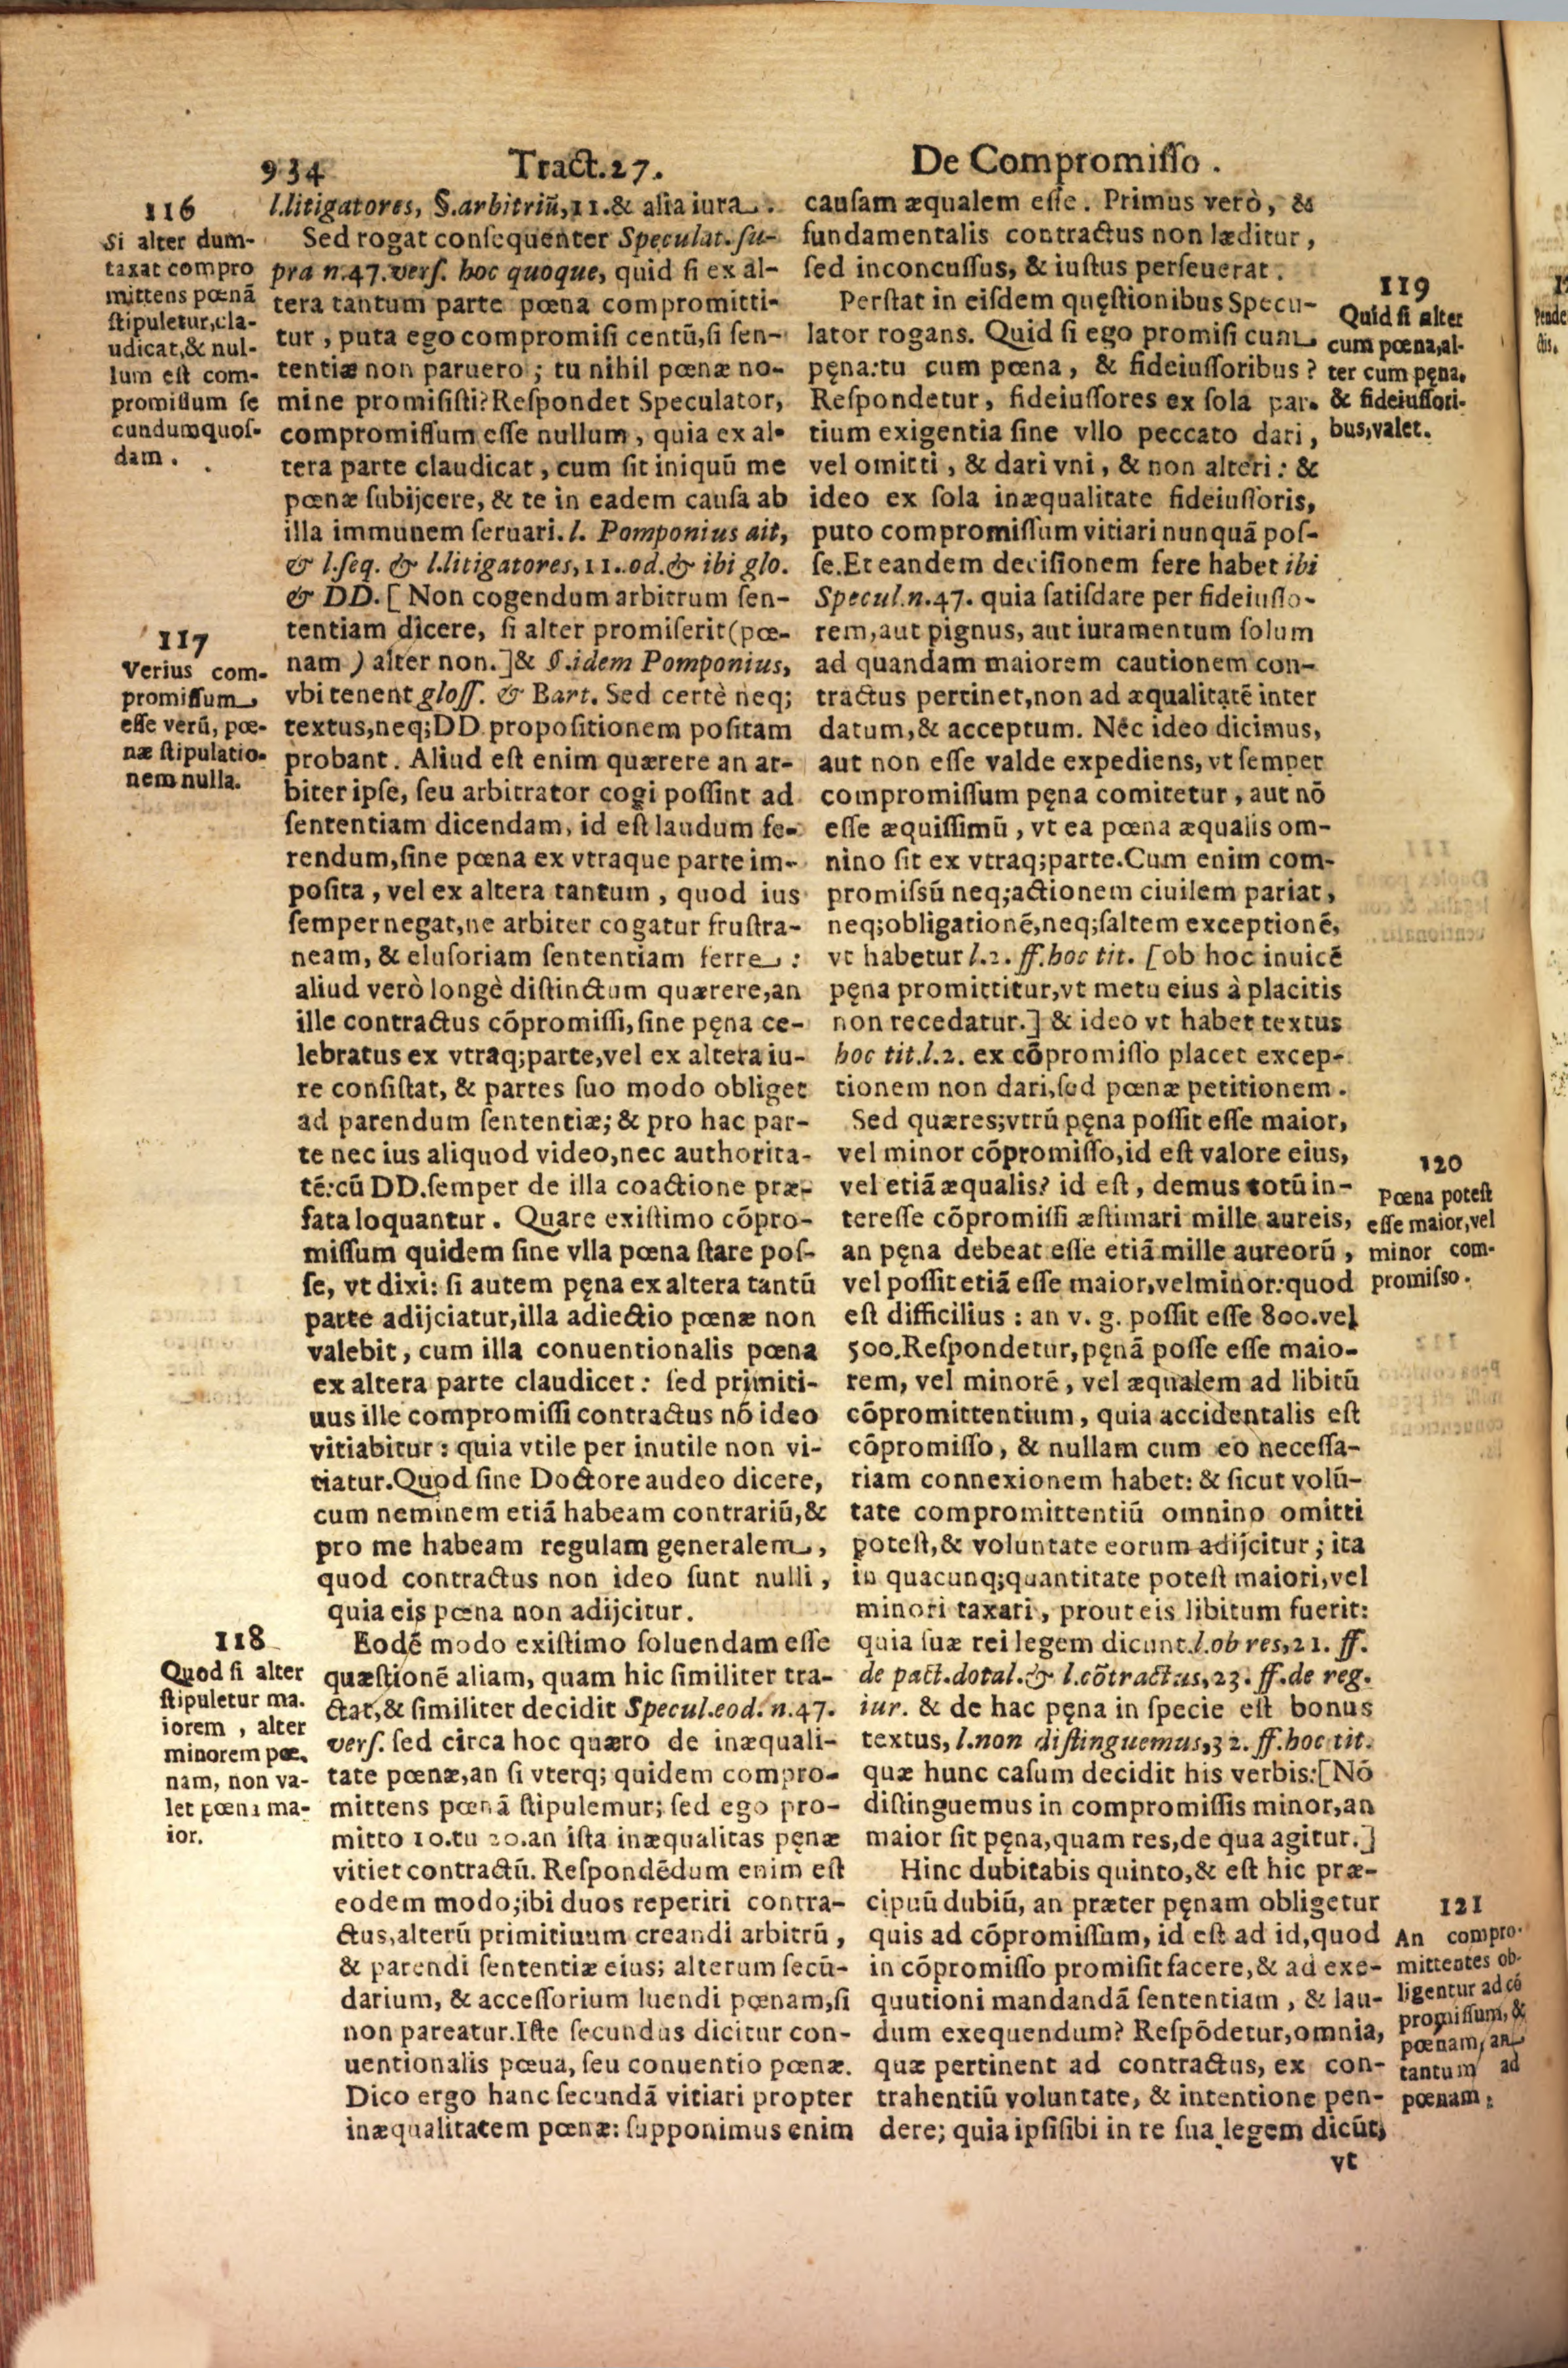 934 Tract.27. De Compromiſſo.
116
Si alter dum-
taxat compro
mittens pœnã
ſtipuletur,cla-
udicat,& nul-
lum eſt com-
promiſſum ſe
cundum quoſ-
dam.
117
Verius com-
promiſſum
eſſe verũ, pœ-
næ ſtipulatio-
nem nulla.
118
Quod ſi alter
ſtipuletur ma-
iorem, alter
minorem pœ-
nam, non va-
let pœna ma-
ior.
l.litigatores, §.arbitriũ,11.& alia iura.
Sed rogat conſequenter Speculat.ſu-
pra n.47.verſ. hoc quoque, quid ſi ex al-
tera tantum parte pœna compromitti-
tur, puta ego compromiſi centũ,ſi ſen-
tentiæ non paruero; tu nihil pœnæ no-
mine promiſiſti?Reſpondet Speculator,
compromiſſum eſſe nullum, quia ex al-
tera parte claudicat, cum ſit iniquũ me
pœnæ ſubijcere, & te in eadem cauſa ab
illa immunem ſeruari.l. Pomponius ait,
& l.ſeq. & l.litigatores,11..od.& ibi glo.
& DD.[Non cogendum arbitrum ſen-
tentiam dicere, ſi alter promiſerit(pœ-
nam) alter non.]& §.idem Pomponius,
vbi tenent gloſſ. & Bart. Sed certè neq;
textus,neq;DD.propoſitionem poſitam
probant. Aliud eſt enim quærere an ar-
biter ipſe, ſeu arbitrator cogi poſſint ad
ſententiam dicendam, id eſt laudum fe-
rendum,ſine pœna ex vtraque parte im-
poſita, vel ex altera tantum, quod ius
ſemper negat,ne arbiter cogatur fruſtra-
neam, & eluſoriam ſententiam ferre:
aliud verò longè diſtinctum quærere,an
ille contractus cõpromiſſi,ſine pęna ce-
lebratus ex vtraq;parte,vel ex altera iu-
re conſiſtat, & partes ſuo modo obliget
ad parendum ſententiæ; & pro hac par-
te nec ius aliquod video,nec authorita-
tẽ:cũ DD.ſemper de illa coactione præ-
fata loquantur. Quare exiſtimo cõpro-
miſſum quidem ſine vlla pœna ſtare poſ-
ſe, vt dixi: ſi autem pęna ex altera tantũ
parte adijciatur,illa adiectio pœnæ non
valebit, cum illa conuentionalis pœna
ex altera parte claudicet: ſed primiti-
uus ille compromiſſi contractus nõ ideo
vitiabitur: quia vtile per inutile non vi-
tiatur.Quod ſine Doctore audeo dicere,
cum neminem etiã habeam contrariũ,&
pro me habeam regulam generalem,
quod contractus non ideo ſunt nulli,
quia eis pœna non adijcitur.
Eodẽ modo exiſtimo ſoluendam eſſe
quæſtionẽ aliam, quam hic ſimiliter tra-
ctat,& ſimiliter decidit Specul.eod. n.47.
verſ. ſed circa hoc quæro de inæquali-
tate pœnæ,an ſi vterq; quidem compro-
mittens pœnã ſtipulemur; ſed ego pro-
mitto 10.tu 20.an iſta inæqualitas pęnæ
vitiet contractũ. Reſpondẽdum enim eſt
eodem modo;ibi duos reperiri contra-
ctus,alterũ primitiuum creandi arbitrũ,
& parendi ſententiæ eius; alterum ſecũ-
darium, & acceſſorium luendi pœnam,ſi
non pareatur.Iſte ſecundus dicitur con-
uentionalis pœua, ſeu conuentio pœnæ.
Dico ergo hanc ſecundã vitiari propter
inæqualitatem pœnæ: ſupponimus enim
cauſam æqualem eſſe. Primus verò, &
fundamentalis contractus non læditur,
ſed inconcuſſus, & iuſtus perſeuerat.
Perſtat in eiſdem quęſtionibus Specu-
lator rogans. Quid ſi ego promiſi cum
pęna:tu cum pœna, & fideiuſſoribus?
Reſpondetur, fideiuſſores ex ſola par-
tium exigentia ſine vllo peccato dari,
vel omitti, & dari vni, & non alteri: &
ideo ex ſola inæqualitate fideiuſſoris,
puto compromiſſum vitiari nunquã poſ-
ſe.Et eandem deciſionem fere habet ibi
Specul.n.47. quia ſatiſdare per fideiuſſo-
rem,aut pignus, aut iuramentum ſolum
ad quandam maiorem cautionem con-
tractus pertinet,non ad æqualitatẽ inter
datum,& acceptum. Nec ideo dicimus,
aut non eſſe valde expediens, vt ſemper
compromiſſum pęna comitetur, aut nõ
eſſe æquiſſimũ, vt ea pœna æqualis om-
nino ſit ex vtraq;parte.Cum enim com-
promiſsũ neq;actionem ciuilem pariat,
neq;obligationẽ,neq;ſaltem exceptionẽ,
vt habetur l.2. ff.hoc tit. [ob hoc inuicẽ
pęna promittitur,vt metu eius à placitis
non recedatur.] & ideo vt habet textus
hoc tit.l.2. ex cõpromiſſo placet excep-
tionem non dari,ſed pœnæ petitionem.
Sed quæres;vtrũ pęna poſſit eſſe maior,
vel minor cõpromiſſo,id eſt valore eius,
vel etiã æqualis? id eſt, demus totũ in-
tereſſe cõpromiſſi æſtimari mille aureis,
an pęna debeat eſſe etiã mille aureorũ,
vel poſſit etiã eſſe maior,vel minor:quod
eſt difficilius: an v. g. poſſit eſſe 800.vel
500.Reſpondetur,pęnã poſſe eſſe maio-
rem, vel minorẽ, vel æqualem ad libitũ
cõpromittentium, quia accidentalis eſt
cõpromiſſo, & nullam cum eo neceſſa-
riam connexionem habet: & ſicut volũ-
tate compromittentiũ omnino omitti
poteſt,& voluntate eorum adijcitur; ita
in quacunq;quantitate poteſt maiori,vel
minori taxari, prout eis libitum fuerit:
quia ſuæ rei legem dicunt.l.ob res,21. ff.
de pact.dotal.& l.cõtractus,23. ff.de reg.
iur. & de hac pęna in ſpecie eſt bonus
textus, l.non diſtinguemus,32. ff.hoc tit.
quæ hunc caſum decidit his verbis:[Nõ
diſtinguemus in compromiſſis minor,an
maior ſit pęna,quam res,de qua agitur.]
Hinc dubitabis quinto,& eſt hic præ-
cipuũ dubiũ, an præter pęnam obligetur
quis ad cõpromiſſum, id eſt ad id,quod
in cõpromiſſo promiſit facere,& ad exe-
quutioni mandandã ſententiam, & lau-
dum exequendum? Reſpõdetur,omnia,
quæ pertinent ad contractus, ex con-
trahentiũ voluntate, & intentione pen-
dere; quia ipſi ſibi in re ſua legem dicũt,
vt
119
Quid ſi alter
cum pœna,al-
ter cum pęna,
& fideiuſſori-
bus,valet.
120
Pœna poteſt
eſſe maior,vel
minor com-
promiſso.
121
An compro-
mittentes ob-
ligentur ad cõ
promiſſum, &
pœnam, an
tantum ad
pœnam.